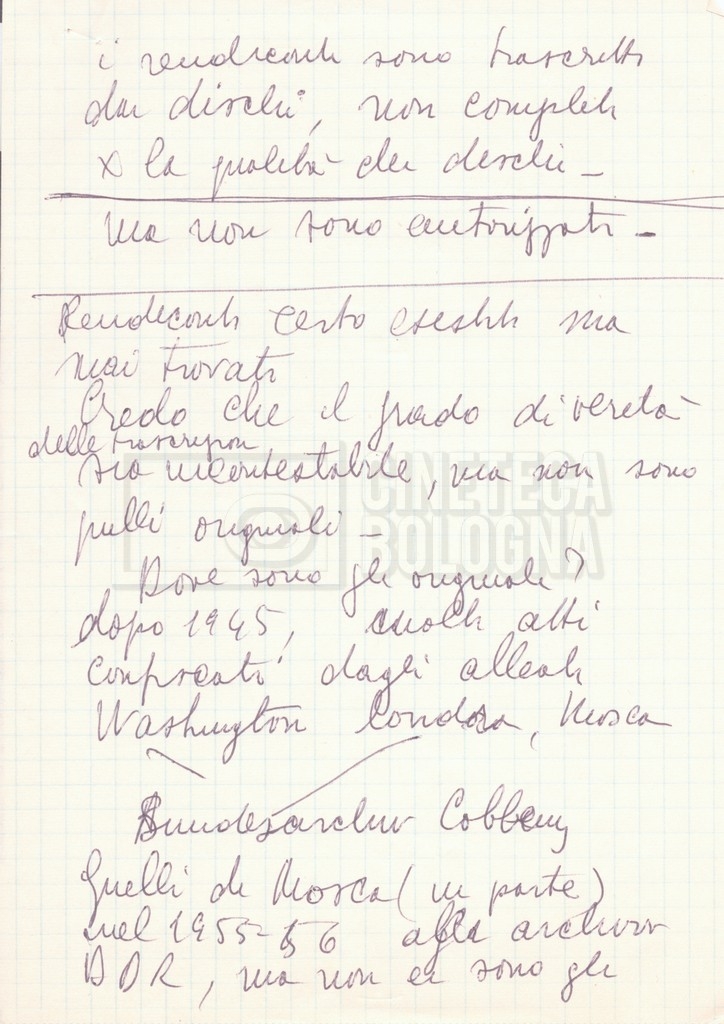 i rendiconti sono trascritti
dai dischi, non completi
x la qualità dei dischi -
ma non sono autorizzati -
Rendiconti certo esistiti ma
mai trovati
Credo che il grado di verità
delle trascrizioni
sia incontestabile, ma non sono
quelli originali -
CINETECA
BOLOGNA
Dove sono gli originali?
dopo 1945, molti atti
confiscati dagli alleati
Washington Londra, Mosca
Bundesarchiv
Quelli di Mosca (in parte)
nel 1955-56 archivi
DDR, ma non ci sono gli